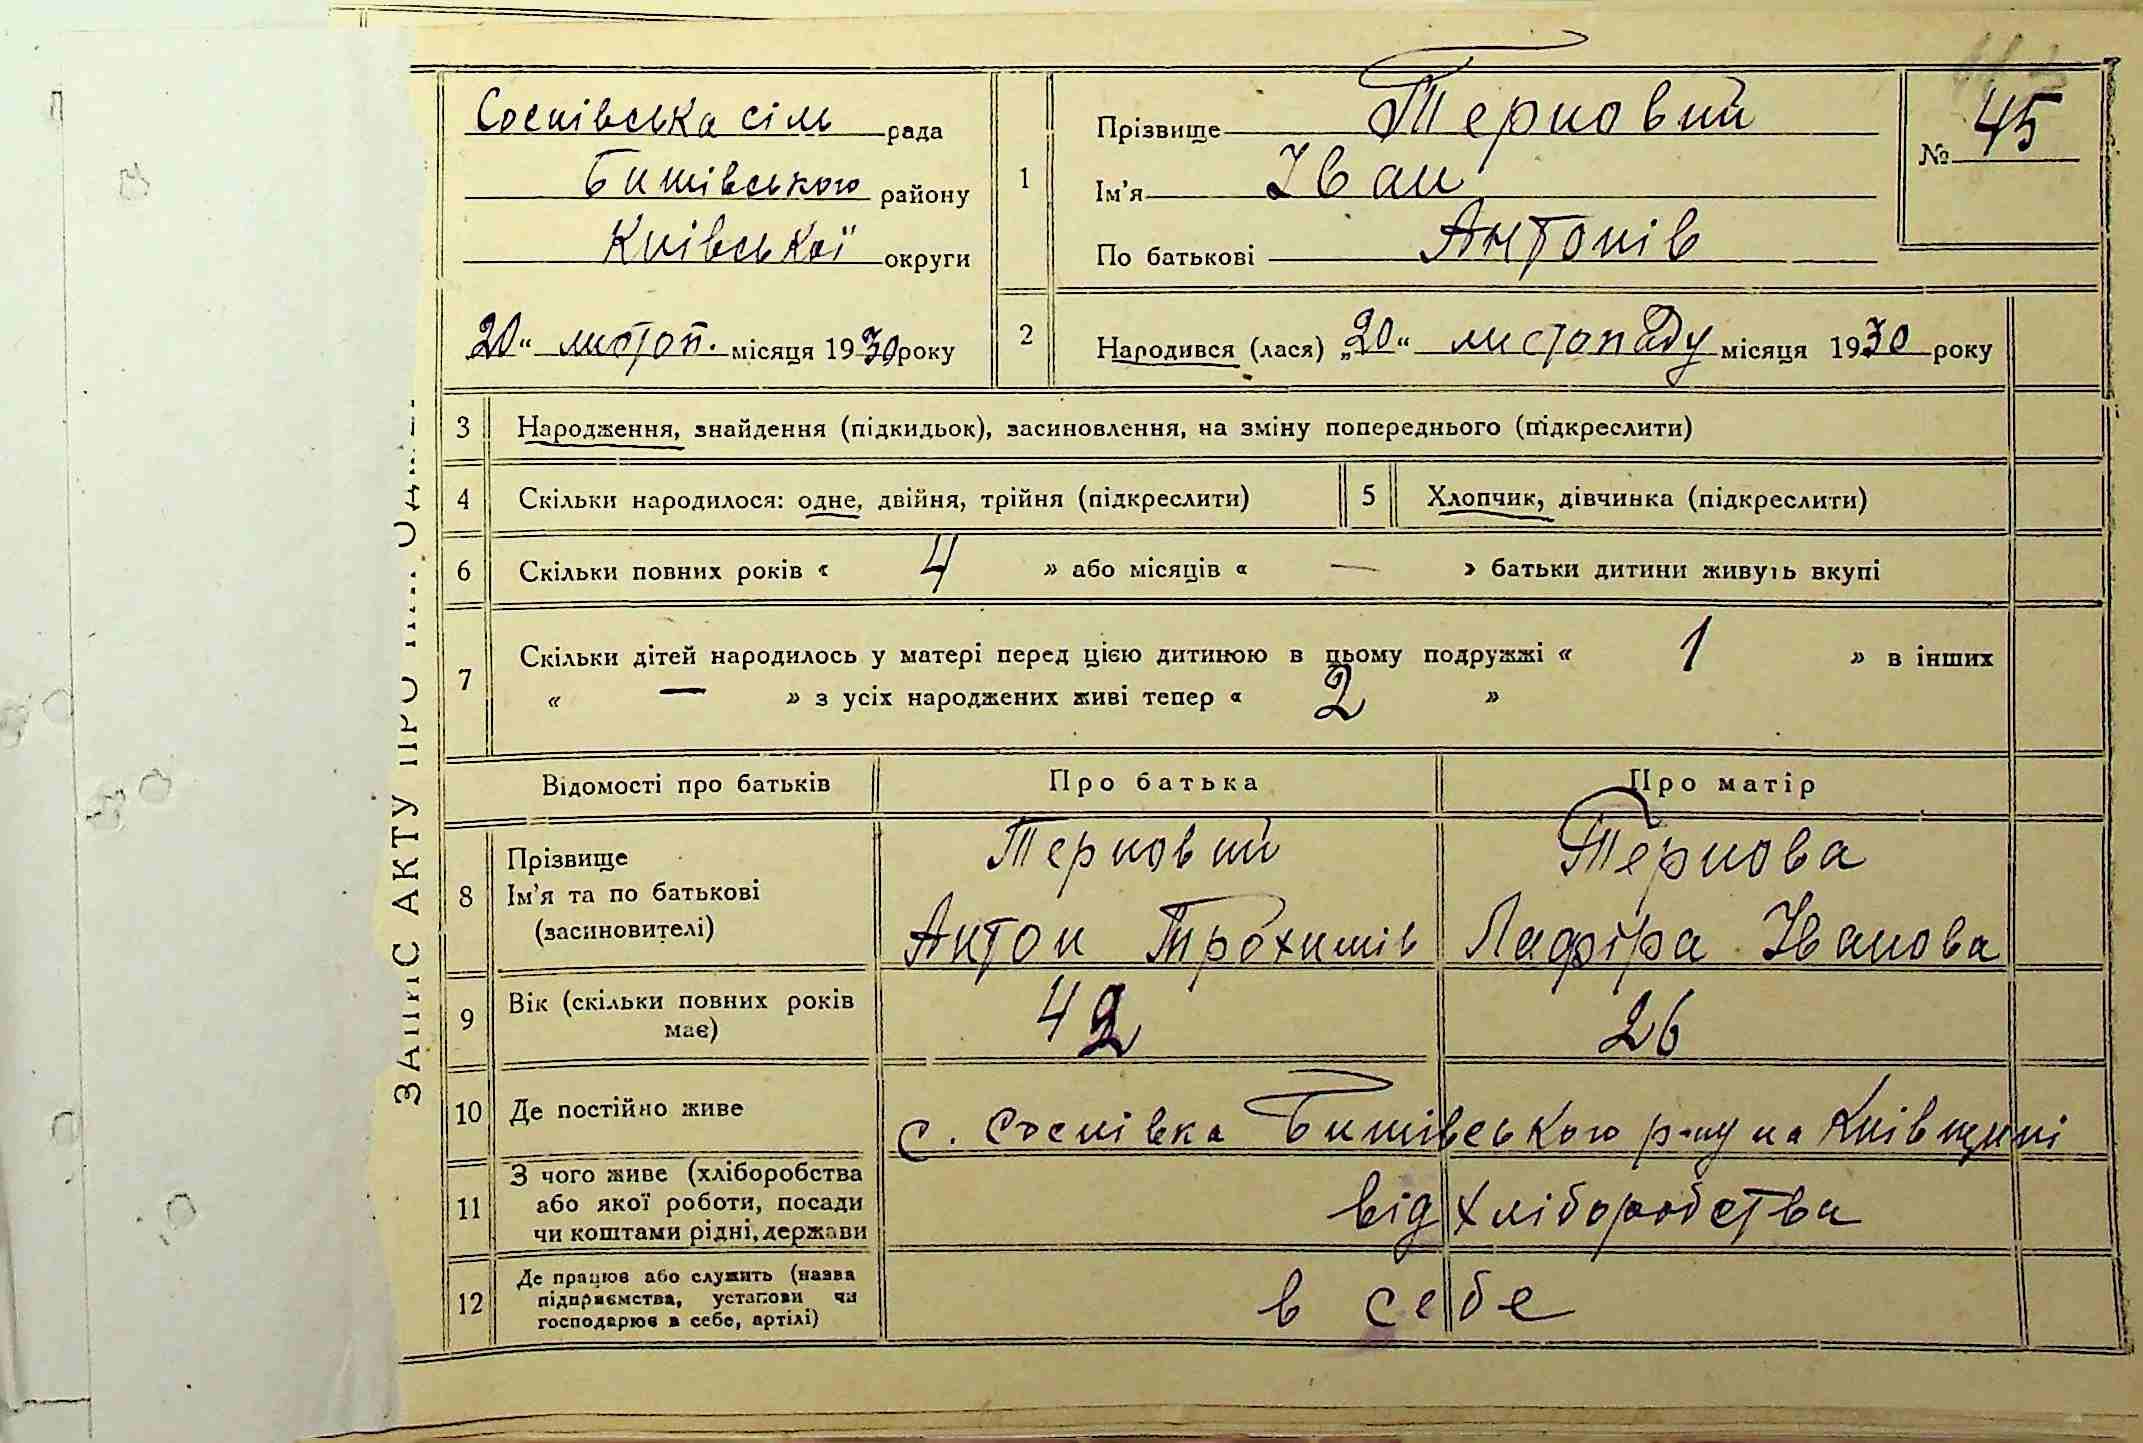 ЗАПИС АКТУ ПРО
Соснівська сіл рада
Бишівського району
Київської округи
20" листоп. місяця 1930 року
1
Прізвище Терновий
Ім'я Іван
По батькові Антонів
№ 45
2
Народився (лася) „20" листопаду місяця 1930 року
3 Народження, знайдення (підкидьок), засиновлення, на зміну попереднього (підкреслити)
4 Скільки народилося: одне, двійня, трійня (підкреслити)
5 Хлопчик, дівчинка (підкреслити)
6 Скільки повних років « 4 » або місяців « — » батьки дитини живуть вкупі
7 Скільки дітей народилось у матері перед цією дитиною в цьому подружжі « 1 » в інших
« — » з усіх народжених живі тепер « 2 »
Відомості про батьків Про батька Про матір
8 Прізвище
Ім'я та по батькові
(засиновителі)
Терновий
Антон Трохимів
Тернова
Лафіра Іванова
9 Вік (скільки повних років
має)
42 26
10 Де постійно живе с. Соснівка Бишівського р-ну на Київщині
11 З чого живе (хліборобства
або якої роботи, посади
чи коштами рідні, держави
від хліборобства
12 Де працює або служить (назва
підприємства, установи чи
господарює в себе, артілі)
в себе